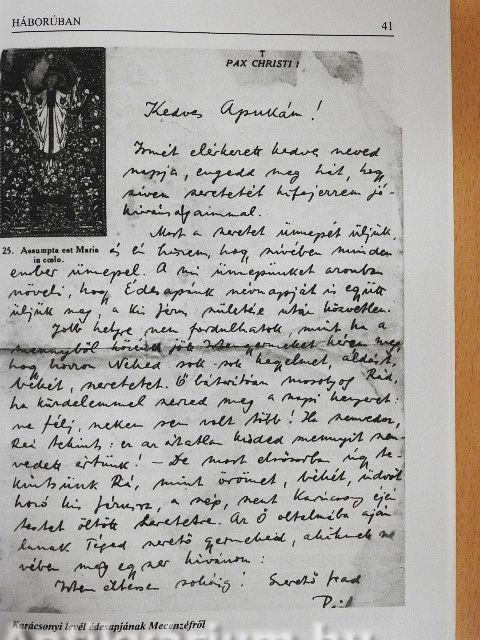 HÁBORÚBAN
41
†
PAX CHRISTI !
Kedves Apukám!
Ismét elérkezett kedves neved
napja, engedd meg hát, hogy
szívem szeretetét kifejezzem jó-
kívánságaimmal.
Most a szeretet ünnepét üljük,
25. Assumpta est Maria
in coelo.
és én hiszem, hogy szívében minden
ember ünnepel. A mi ünnepünket azonban
növeli, hogy Édesapánk névnapját is együtt
üljük meg, a kis Jézus születése után közvetlen.
Jobb helyre nem fordulhatok, mint ha a
mennyből közénk jött Istengyermeket kérem meg,
hogy hozzon Néked sok-sok kegyelmet, áldást,
békét, szeretetet. Ő bátorítóan mosolyog Rád,
ha küzdelemmel szerzed meg a napi kenyeret:
ne félj, nekem sem volt több! Ha szenvedsz,
Rá tekints: ez az ártatlan kisded mennyit szen-
vedett értünk! – De most elsősorban úgy te-
kintsünk Rá, mint örömet, békét, üdvöt
hozó kis Jézusra, a szép, szent Karácsony éjén
testet öltött Szeretetre. Az Ő oltalmába aján-
lanak Téged szerető gyermekeid, akiknek ne-
vében még egyszer kívánom:
Isten éltessen sokáig! Szerető fiad
Karácsonyi levél édesapjának Mecenzéfről